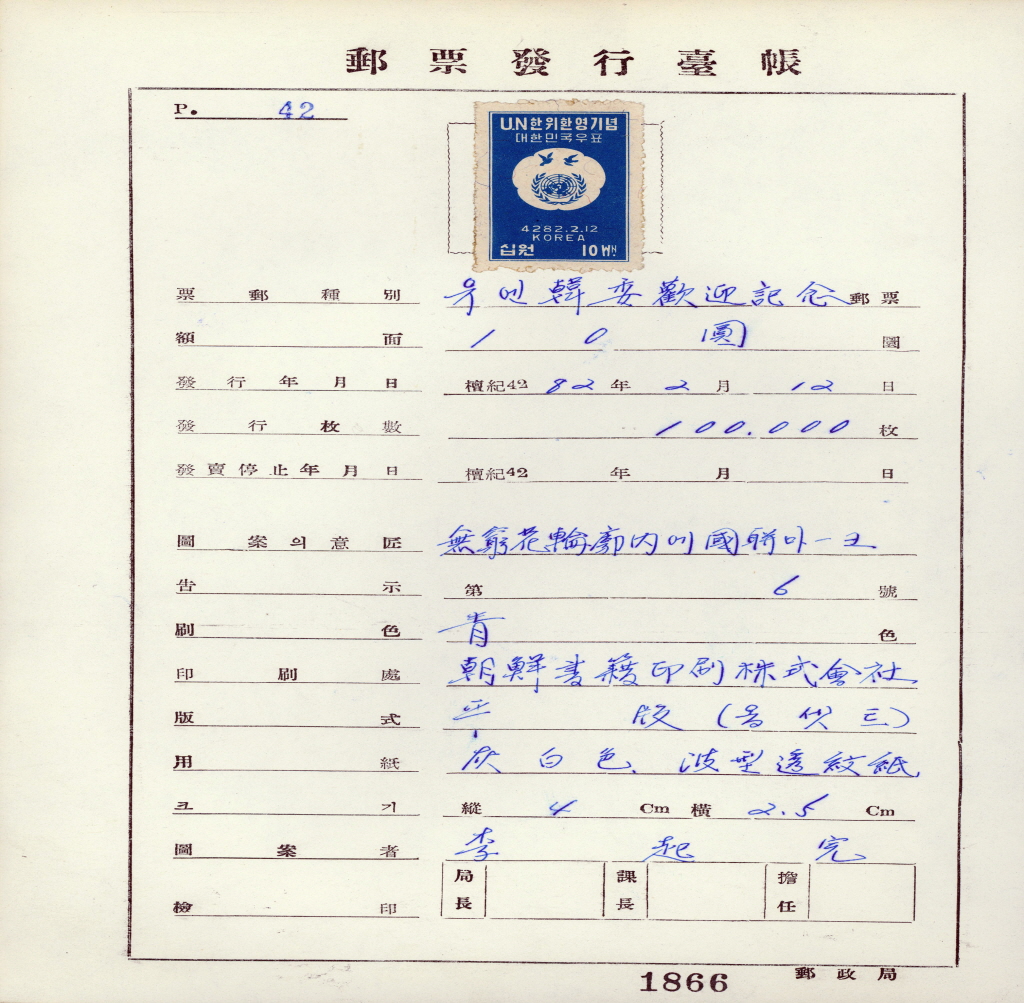 郵票發行臺帳
P. 42
U.N한위환영기념
대한민국우표
4282.2.12
KOREA
십원 10 WN
票郵種別 우엔韓委歡迎記念郵票
額面 10圓 圓
發行年月日 檀紀42 82年 2月 12日
發行枚數 100.000枚
發賣停止年月日 檀紀42 年 月 日
圖案의意匠 無窮花輪廓內에國聯마-크
告示 第 6 號
刷色 青色
印刷處 朝鮮書籍印刷株式會社
版式 平版(옵셋트)
用紙 灰白色、波型透紋紙
크기 縱 4 Cm 橫 2.5 Cm
圖案者 李起完
檢印 局長 課長 擔任
1866 郵政局